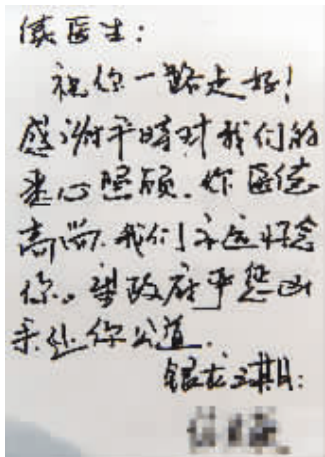 侯医生：
祝你一路走好！
感谢平時对我们的
悉心照顾. 你医德
高尚. 我们永远怀念
你。望政府严惩凶
手还你公道.
银龙三期